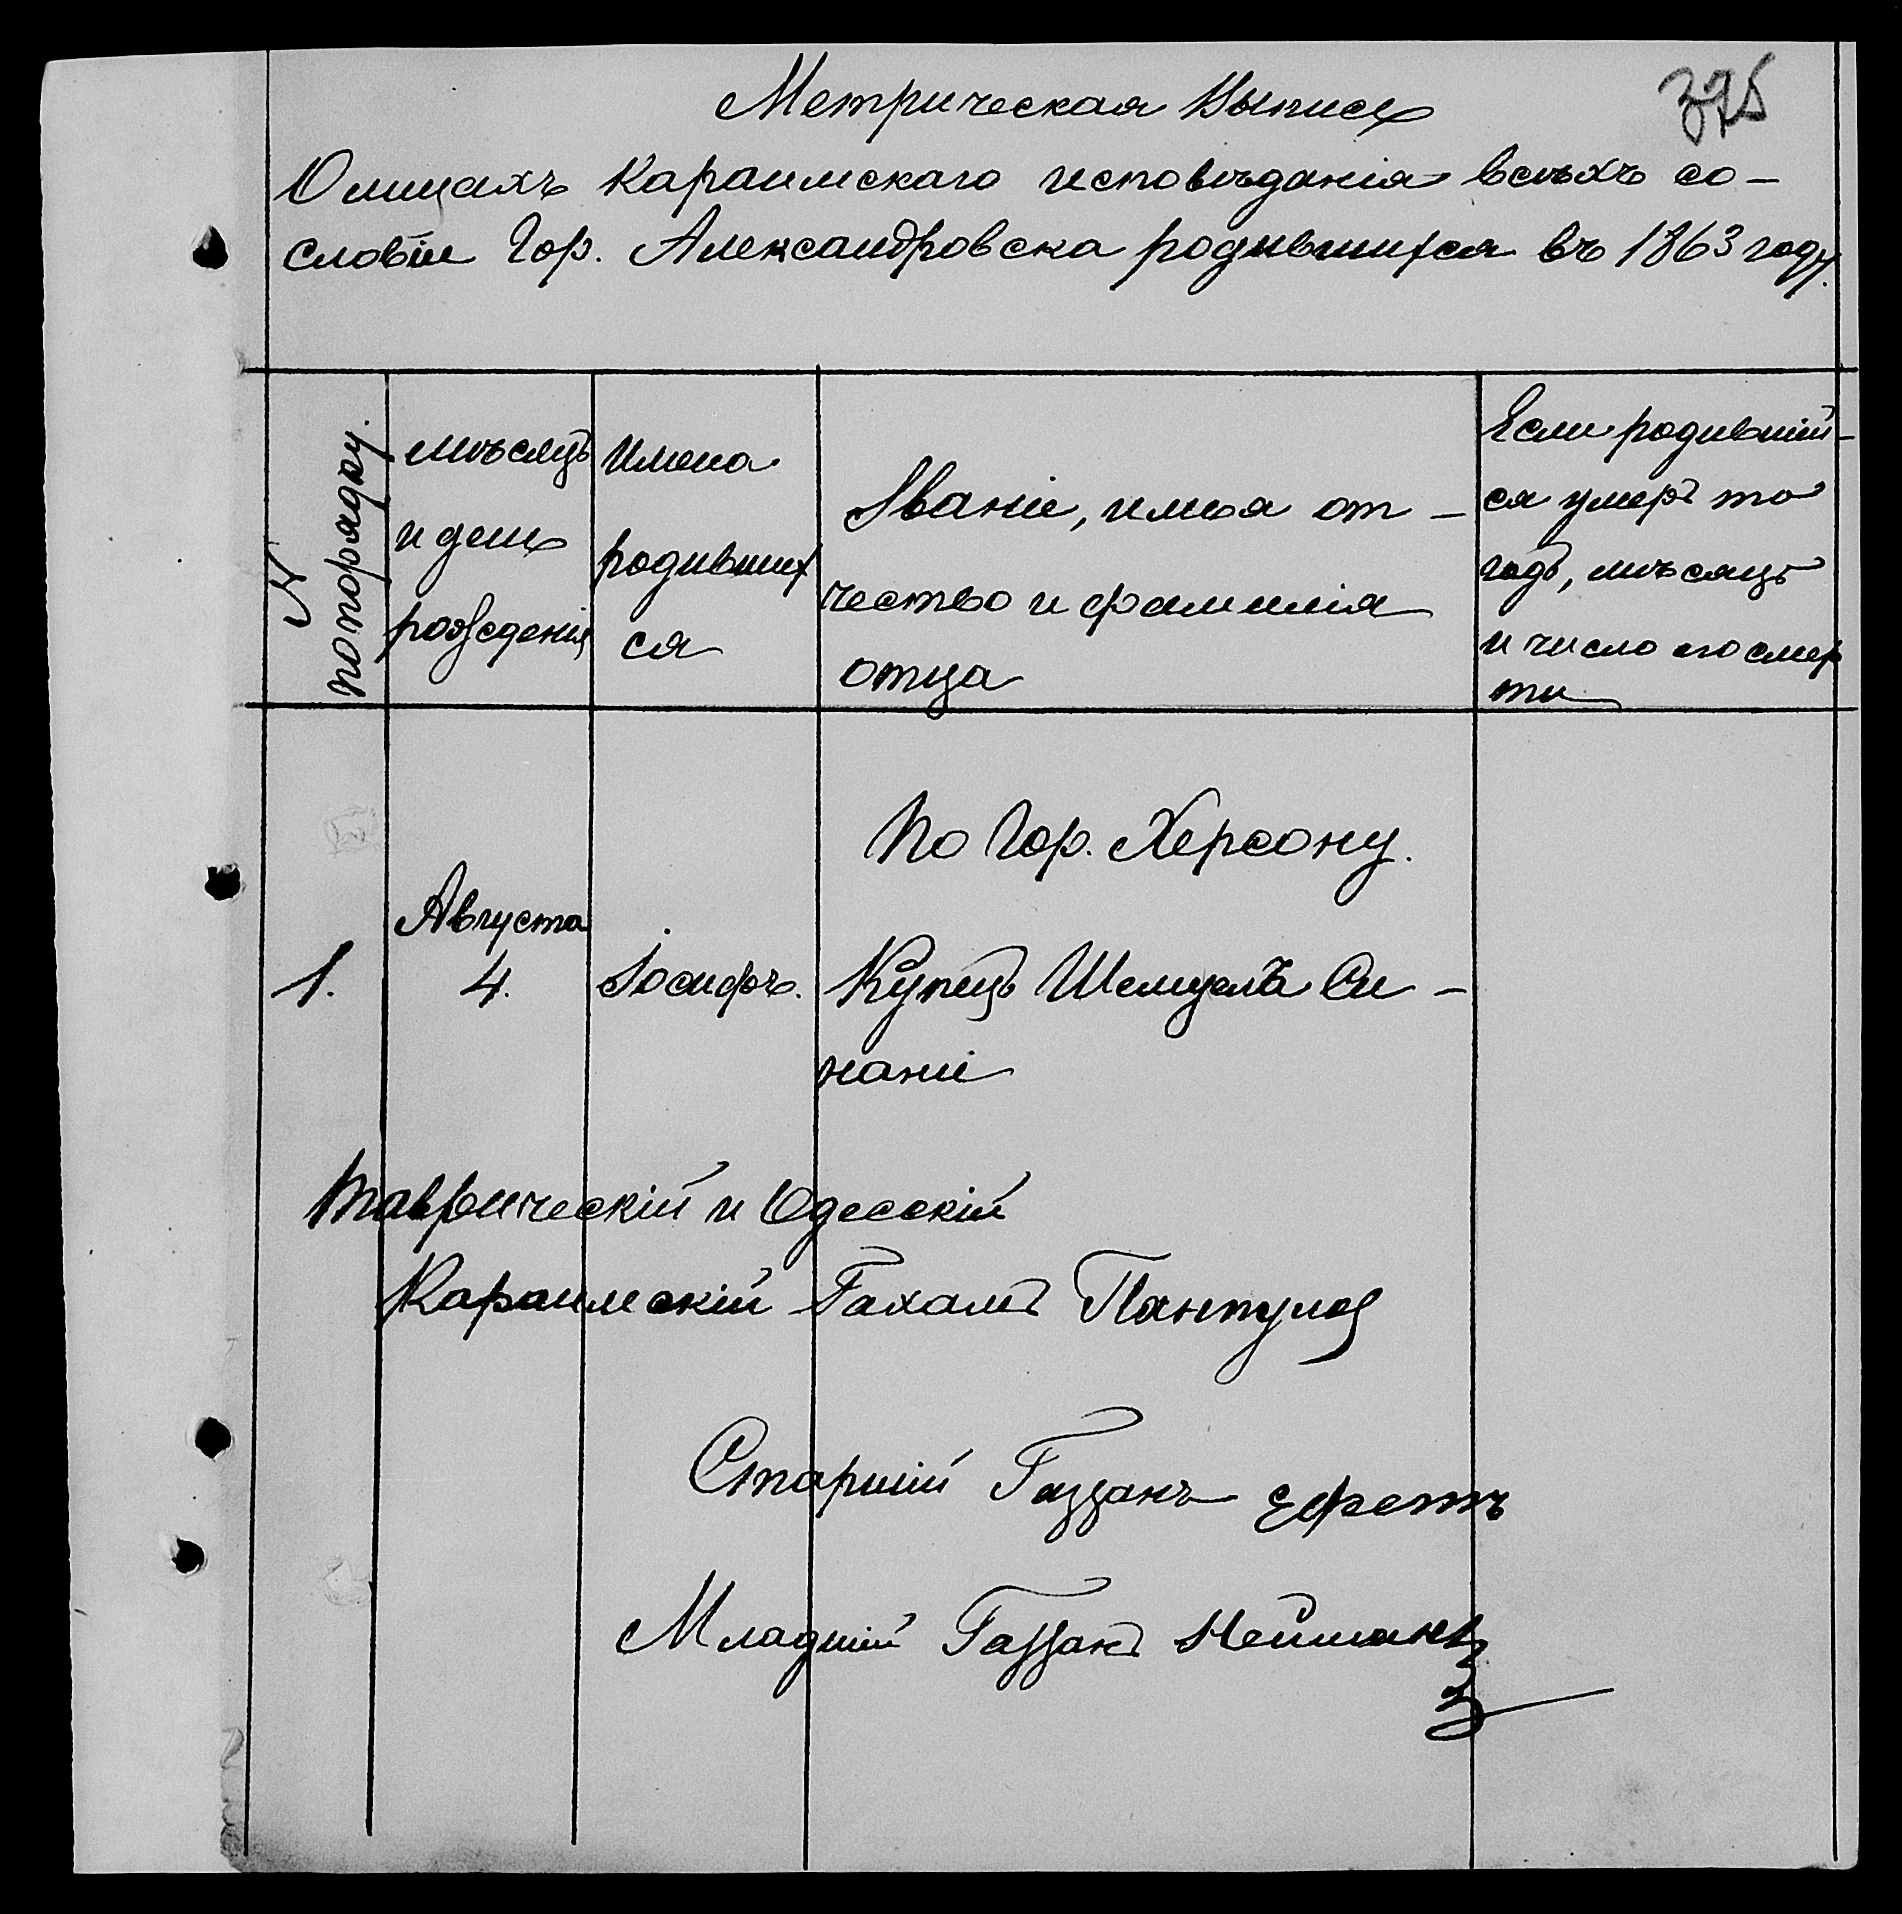 375
Метрическая Выпись
О лицахъ Караимскаго исповѣданія всѣхъ со-
словіи Гор. Александровска родившихся въ 1863 году.
№ по порядку.
мѣсяцъ
и день
рожденія
Имена
родивших
ся
Званіе, имя от-
чество и фамилія
отца
Если родившій-
ся умеръ то
годъ, мѣсяцъ
и число его смер
ти
По Гор. Херсону.
Августа
1. 4. Іосифъ. Купецъ Шемуелъ Си-
нани
Таврическій и Одесскій
Караимскій Гахамъ Пампулов
Старшій Газзанъ Ефетъ
Младшій Газзанъ Нейманъ